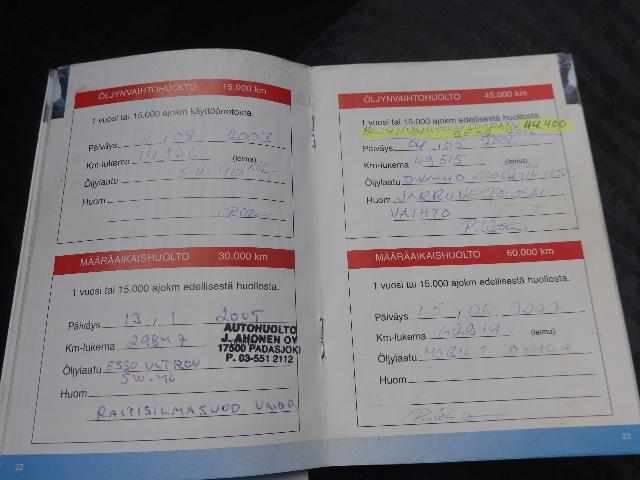 ÖLJYNVAIHTOHUOLTO 15.000 km
1 vuosi tai 15.000 ajokm käyttöönotosta.
Päiväys 11, 08 2003
Km-lukema 14996 (leima)
Öljylaatu 5W-40
Huom
MÄÄRÄAIKAISHUOLTO 30.000 km
1 vuosi tai 15.000 ajokm edellisestä huollosta.
Päiväys 13, 1 2005
Km-lukema 29847
AUTOHUOLTO
J. AHONEN OY
17500 PADASJOKI
P. 03-551 2112
Öljylaatu ESSO ULTRON
5W-40
Huom
RAITISILMASUOD. VAIHD.
22
ÖLJYNVAIHTOHUOLTO 45.000 km
1 vuosi tai 15.000 ajokm edellisestä huollosta.
44.400
Päiväys 04, 05 2006
Km-lukema 49515 (leima)
Öljylaatu 0W-40
Huom JARRUNESTEEN
VAIHTO
MÄÄRÄAIKAISHUOLTO 60.000 km
1 vuosi tai 15.000 ajokm edellisestä huollosta.
Päiväys 15, 06 2007
Km-lukema 62914 (leima)
Öljylaatu MOBIL 1 0-40W
Huom
23